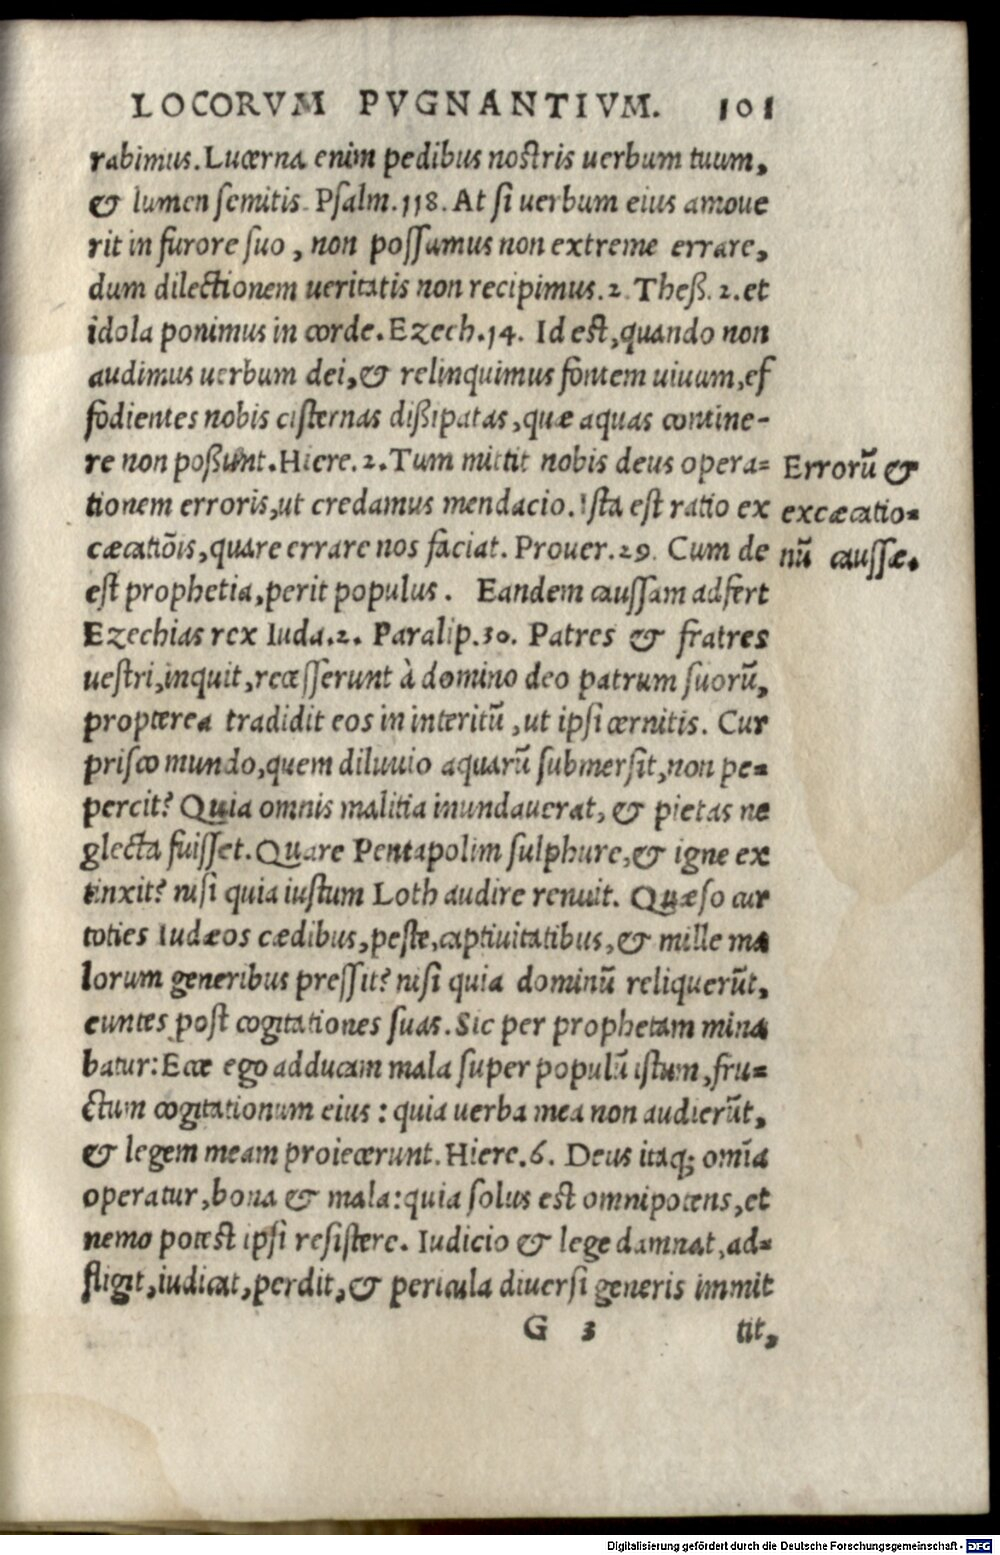 LOCORVM PVGNANTIVM. 101
rabimus. Lucerna enim pedibus nostris uerbum tuum,
& lumen semitis. Psalm. 118. At si uerbum eius amoue
rit in furore suo, non possumus non extreme errare,
dum dilectionem ueritatis non recipimus. 2. Theß. 2. et
idola ponimus in corde. Ezech. 14. Id est, quando non
audimus uerbum dei, & relinquimus fontem uiuum, ef
fodientes nobis cisternas dißipatas, quæ aquas contine-
re non poßunt. Hiere. 2. Tum mittit nobis deus opera=
tionem erroris, ut credamus mendacio. Ista est ratio ex
cæcatiõis, quare errare nos faciat. Prouer. 29. Cum de
est prophetia, perit populus. Eandem caussam adfert
Ezechias rex Iuda. 2. Paralip. 30. Patres & fratres
uestri, inquit, recesserunt à domino deo patrum suorũ,
propterea tradidit eos in interitũ, ut ipsi cernitis. Cur
prisco mundo, quem diluuio aquarũ submersit, non pe=
percit? Quia omnis malitia inundauerat, & pietas ne
glecta fuisset. Quare Pentapolim sulphure, & igne ex
tinxit? nisi quia iustum Loth audire renuit. Quæso cur
toties Iudæos cædibus, peste, captiuitatibus, & mille ma
lorum generibus pressit? nisi quia dominũ reliquerũt,
euntes post cogitationes suas. Sic per prophetam mina
batur: Ecce ego adducam mala super populũ istum, fru=
ctum cogitationum eius: quia uerba mea non audierũt,
& legem meam proiecerunt. Hiere. 6. Deus itaq; omĩa
operatur, bona & mala: quia solus est omnipotens, et
nemo potest ipsi resistere. Iudicio & lege damnat, ad=
fligit, iudicat, perdit, & pericula diuersi generis immit
G 3 tit,
Errorũ &
excæcatio=
nũ caussæ.
Digitalisierung gefördert durch die Deutsche Forschungsgemeinschaft - DFG